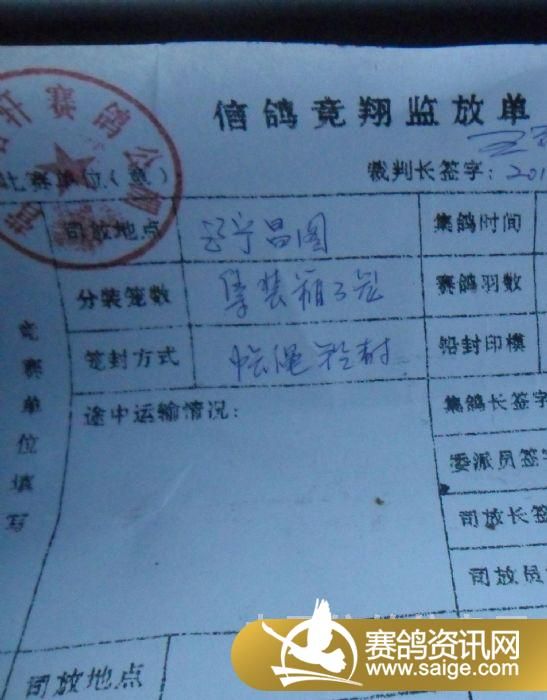 信鸽竞翔监放单
比赛单位(章)
裁判长签字: 201
司放地点 辽宁昌图 集鸽时间
分装笼数 集装箱 赛鸽羽数
笼封方式 绳铅封 铅封印模
竞赛单位填写
途中运输情况:
集鸽长签字
委派员签字
司放长签
司放员
司放地点
赛鸽资讯网
www.saige.com